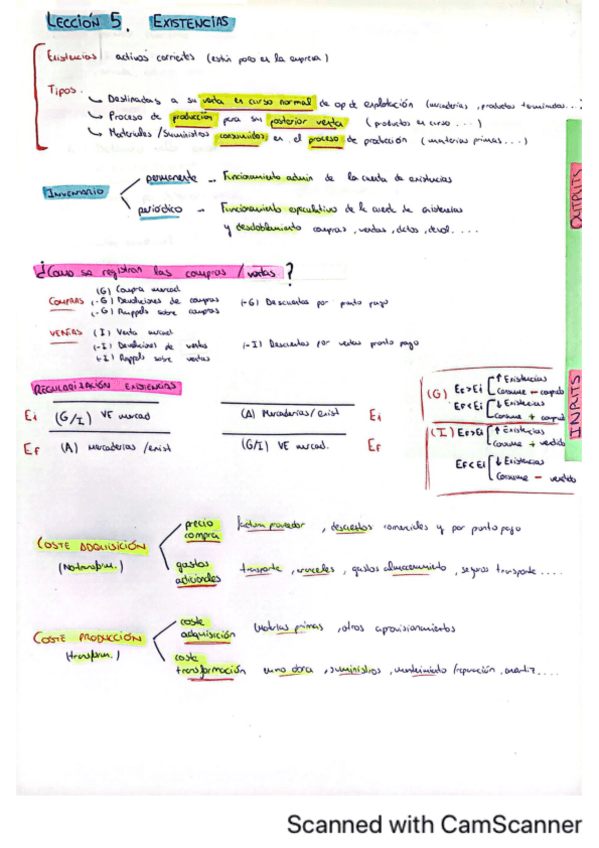 LECCIÓN 5. EXISTENCIAS
Existencias activos corrientes (están poco en la empresa)
Tipos.
Destinadas a su venta en curso normal de op de explotación (mercaderías, productos terminados...
Proceso de producción para su posterior venta (productos en curso ...)
Materiales / Suministros consumidos en el proceso de producción (materias primas...)
OUTPUTS
INVENTARIO
permanente - Funcionamiento admin de la cuenta de existencias
periódico - Funcionamiento especulativo de la cuenta de existencias
y desdoblamiento compras, ventas, dctos, devol....
¿Como se registran las compras / ventas?
COMPRAS
(G) Compra mercad
(-G) Devoluciones de compras
(-G) Rappels sobre compras
(-G) Descuentos por pronto pago
VENTAS
(I) Venta mercad
(-I) Devoluciones de ventas
(-I) Rappels sobre ventas
(-I) Descuentos por ventas pronto pago
REGULARIZACIÓN EXISTENCIAS
Ei (G/I) VE mercad (A) Mercaderías/exist Ei
EF (A) mercaderías /exist (G/I) VE mercad. EF
(G) EF>Ei ↑ Existencias
Consume - comprado
EF<Ei ↓ Existencias
Consume + comprado
(I) EF>Ei ↑ Existencias
Consume + vendido
EF<Ei ↓ Existencias
Consume - vendido
INPUTS
COSTE ADQUISICIÓN
(No transform.)
precio compra factura proveedor, descuentos comerciales y por pronto pago
gastos adicionales transporte, aranceles, gastos almacenamiento, seguros transporte....
COSTE PRODUCCIÓN
(transform.)
coste adquisición Materias primas, otros aprovisionamientos
coste transformación mano obra, suministros, mantenimiento /reparación, amortiz....
Scanned with CamScanner